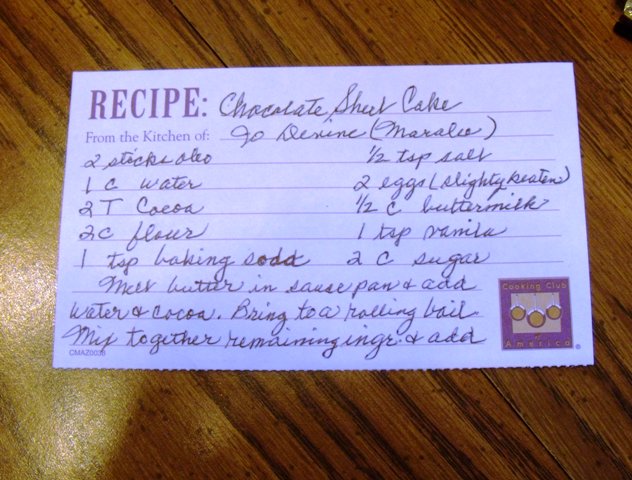 RECIPE: Chocolate Sheet Cake
From the Kitchen of: Jo Devine (Maralee)
2 sticks oleo
1 c water
2 T Cocoa
2 c flour
1 tsp baking soda
1/2 tsp salt
2 eggs (slighty beaten)
1/2 c buttermilk
1 tsp vanila
2 c sugar
Melt butter in sause pan & add
water & cocoa. Bring to a rolling boil.
Mix together remaining ingr. & add
CMAZ0038
Cooking Club
of
America